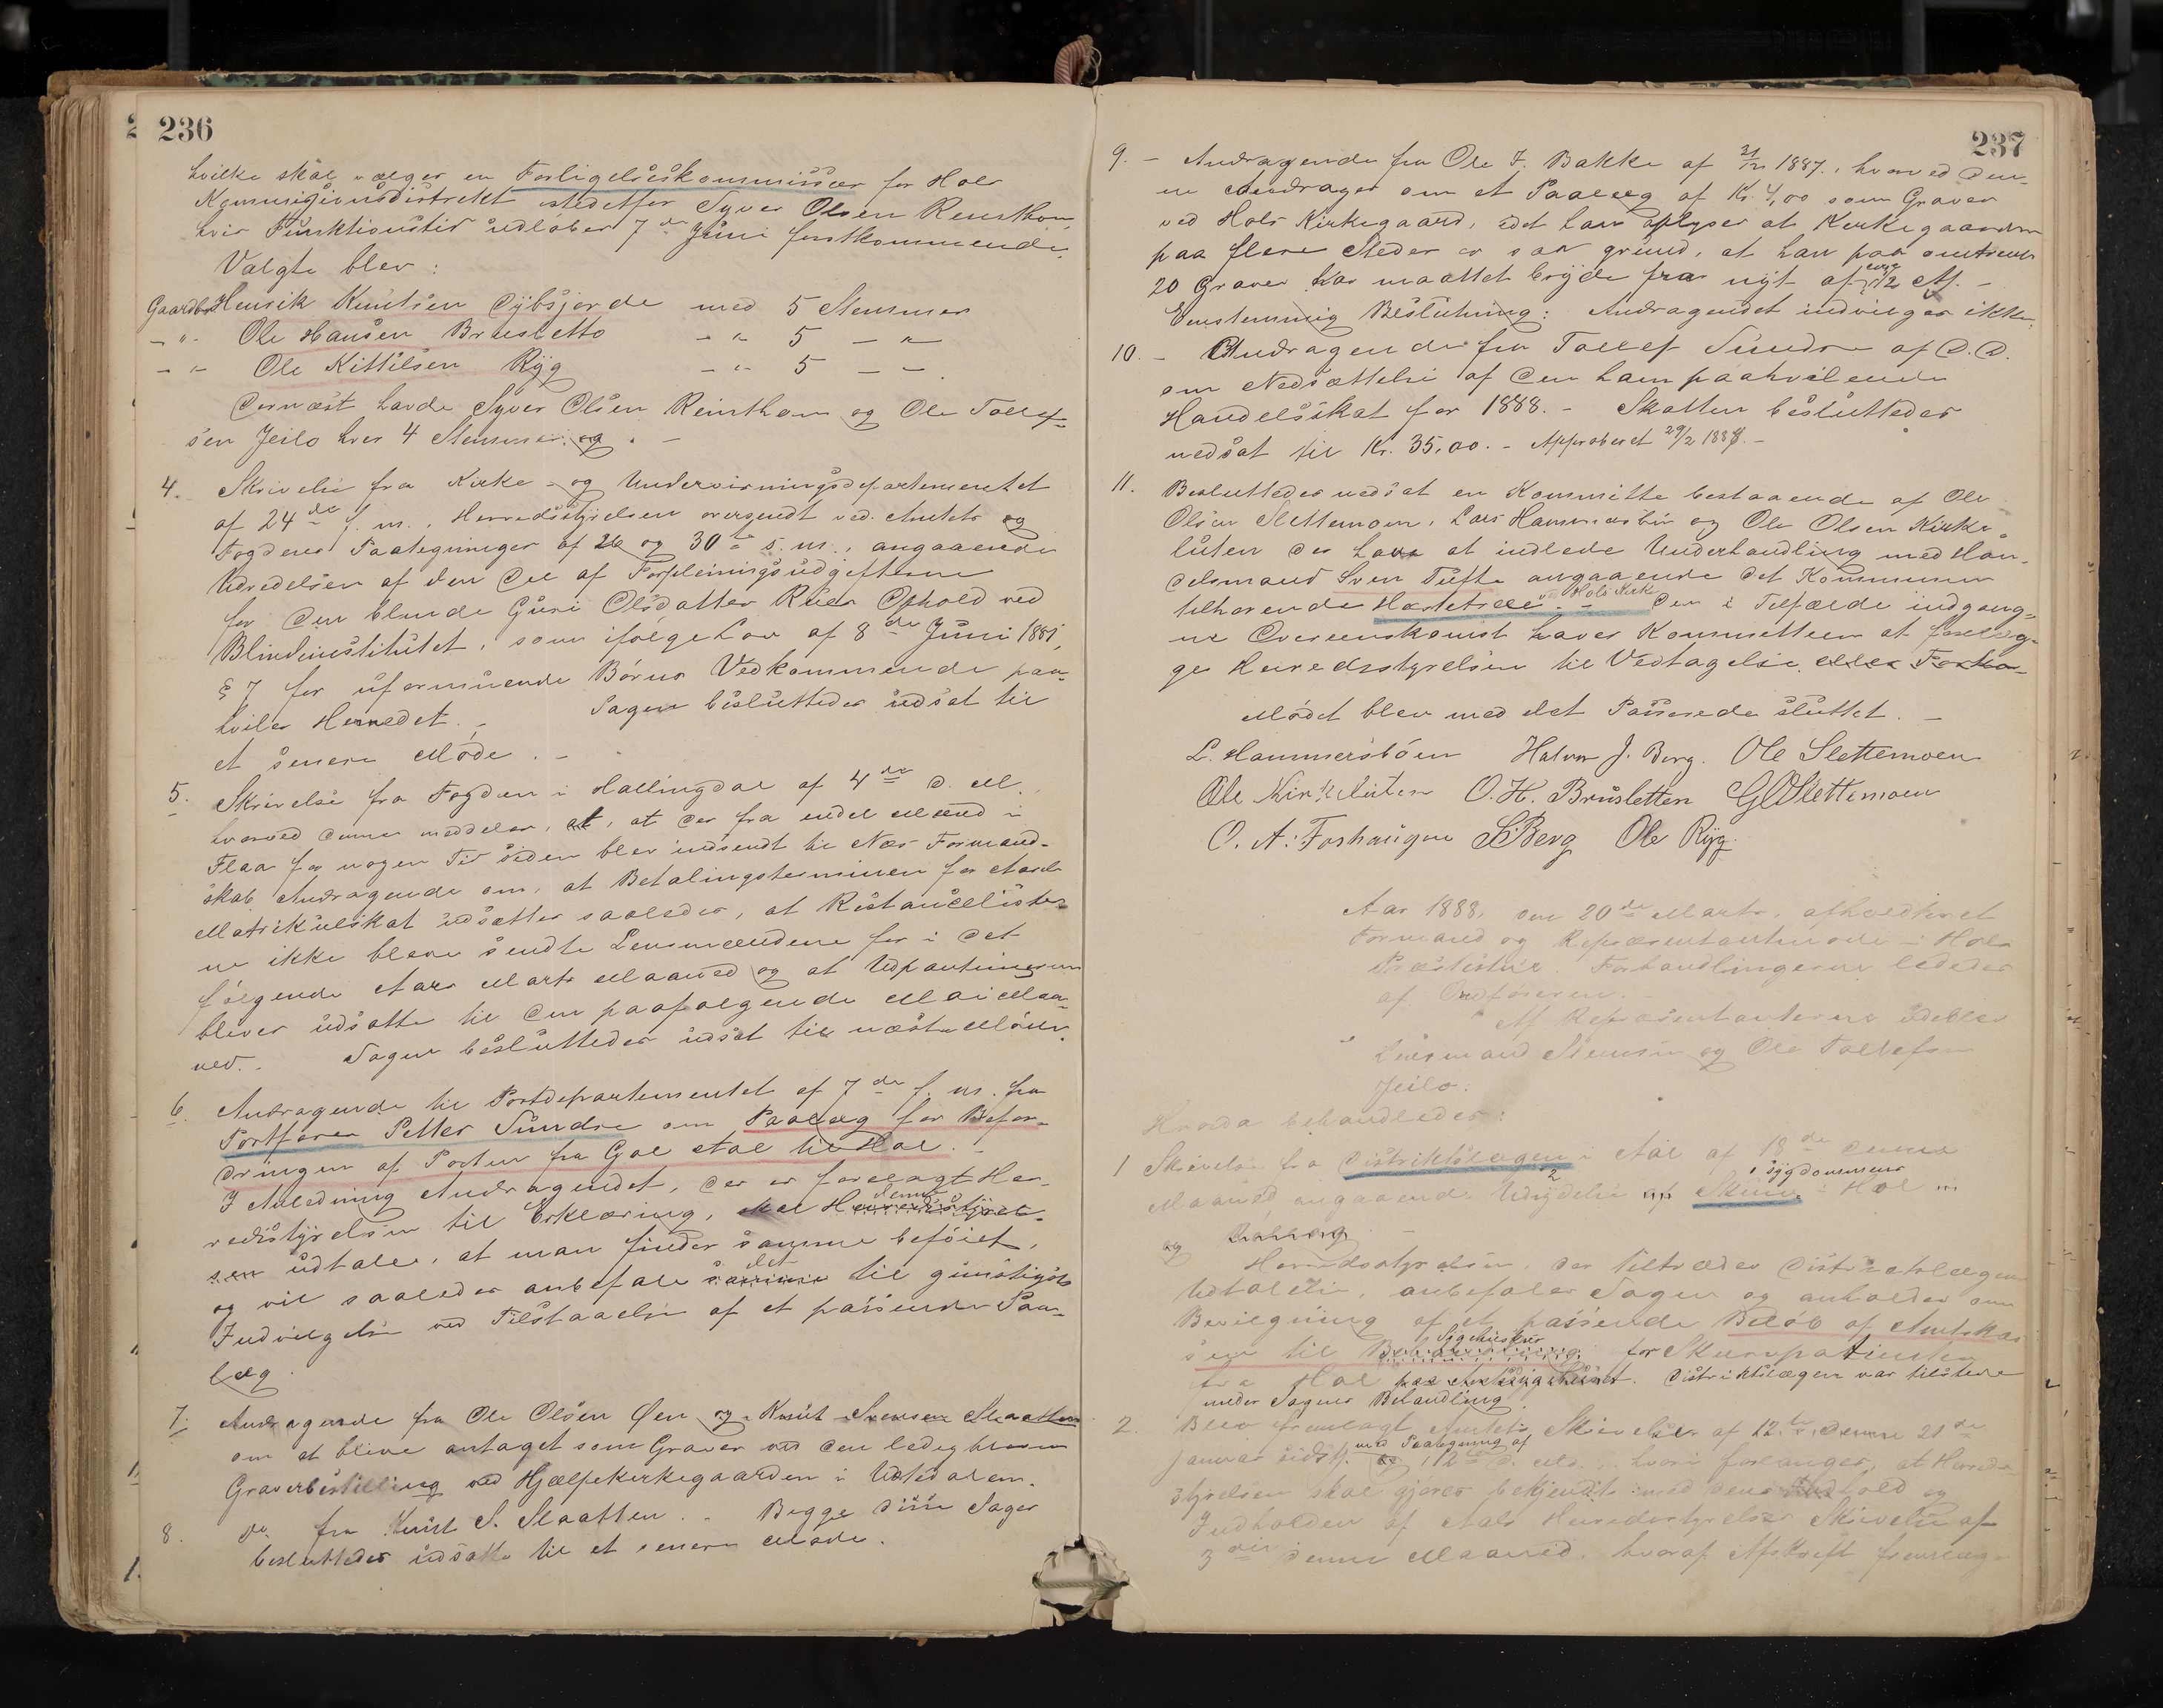 236
hvilke skal vælges en Forligelseskommissær for Hols
Kommissionsdistrikt istedetfor Syver Olsen Reinthon,
hvis Funktionstid udløber 7de Juni førstkommende.
Valgte blev:
Gaardbr Henrik Knutsen Dybsjorde med 5 Stemmer
-"- Ole Hansen Brusletto -"- 5 -"-
-"- Ole Kittilsen Ryg -"- 5 -"-
Dernæst havde Syver Olsen Reinthon og Ole Tollef-
sen Jeilo hver 4 Stemmer. og . -
4. Skrivelse fra Kirke- og Undervisningsdepartementet
af 24de f. m., Herredsstyrelsen oversendt ved Amtets og
Fogdens Paategninger af 26 og 30te s. m., angaaende
Udredelsen af den Del af Forpleiningsudgifterne
for den blinde Guri Olsdatter Ruds Ophold ved
Blindeinstitutet, som ifølge Lov af 8de Juni 1881,
§ 7 for uformuende Børns Vedkommende paa-
hviler Herredet. - Sagen besluttedes udsat til
et senere Møde. -
5. Skrivelse fra Fogden i Hallingdal af 4de d. M.
hvorved denne meddeler, at, at der fra endel Mænd i
Flaa for nogen Tid siden blev indsendt til Nes Formand-
skab Andragende om, at Betalingsterminen for Aarets
Matrikulskat udsættes saaledes, at Restancelister-
ne ikke bleve sendte Lensmændene før i det
følgende Aars Marts Maaned og at Udpantningerne
bliver udsatte til den paafølgende Mai Maa-
ned. - Sagen besluttedes udsat til næste Møde.
6. Andragende til Postdepartementet af 7de f. m. fra
Postfører Petter Sundre om Paalæg for Befor-
dringen af Posten fra Gol Aal til Hol. -
I Anledning Andragendet, der er forelagt Her-
redsstyrelsen til Erklæring, skal Herredsstyrel- denne
sen udtale, at man finder samme beføiet,
og vil saaledes anbefale samme det til gunstigste
Indvilgelse ved Tilstaaelse af et passende Paa-
læg.
7. Andragende fra Ole Olsen Øen og Knut Svensen Slaatten
om at blive antaget som Graver ved den ledigblevne
Graverbestilling ved Hjælpekirkegaarden i Ustedalen.
8. do fra Knut S. Slaatten. - Begge disse Sager
besluttedes udsatte til et senere Møde.
237
9. - Andragende fra Ole J. Bakke af 31/12 1887, hvorved den-
ne andrager om et Paalæg af Kr. 4,00 som Graver
ved Hols Kirkegaard, idet han oplyser at Kirkegaarden
paa flere Steder er saa grund, at han paa omtrent
20 Graver har maattet bryde fra nyt af 1/2 M. -
Eenstemmig Beslutning: Andragendet indvilges ikke.
10. - Andragende fra Tollef Sundre af D. D.
om Nedsættelse af den ham paahvilende
Handelsskat for 1888. - Skatten besluttedes
nedsat til Kr. 35,00. - Approberet 29/2 1888. -
11. Besluttedes nedsat en Kommitte bestaaende af Ole
Olsen Slettemoen, Lars Hammersbøn og Ole Olsen Kirke-
luten der have at indlede Underhandling med Han-
delsmand Sven Tufte angaaende det Kommunen
tilhørende Hestetræe v. Hols Kirke - Den i Tilfælde indgang-
ne Overenskomst haver Kommitteen at forelæg-
ge Herredsstyrelsen til Vedtagelse eller Forka-
Mødet blev med det Passerede sluttet. -
L. Hammersbøen Halvor J. Berg. Ole Slettemoen
Ole Kirkeluten O. H. Brusletten G O Slettemoen
O. A. Foshaugen S Berg Ole Ryg.
Aar 1888, den 20de Marts, afholdtes et
Formand og Repræsentantmøde i Hols
Præstestue. Forhandlingerne lededes
af Ordføreren.
Af Repræsentanterne udeblev
Lensmand Stensen og Ole Tollefsen
Jeilo.
Hvorda behandledes:
1 Skrivelse fra Distriktslægen i Aal af 18de denne
Maaned angaaende Udrydelse af Skurv- Sygdommens i Hol
og
Herredsstyrelsen, der tiltræder Distriktslægens
Udtalelse, anbefaler Sagen og anholder om
Bevilgning af et passende Beløb af Amtskas-
sen til Sygehusleie for Skurvpatienter
fra Hol Distriktslægen var tilstede
under Sagens Behandling.
2. Blev fremlagt Amtets Skrivelse af 12te denne 21de
Januar sidstl. med Paategning af 12te d. Md., hvori forlanges, at Herreds-
styrelsen skal gjøres bekjendt med dens Indhold og
Indholden af Aals Herredsstyrelses Skrivelse af
3die denne Maaned, hvoraf Afskrift fremlæg-